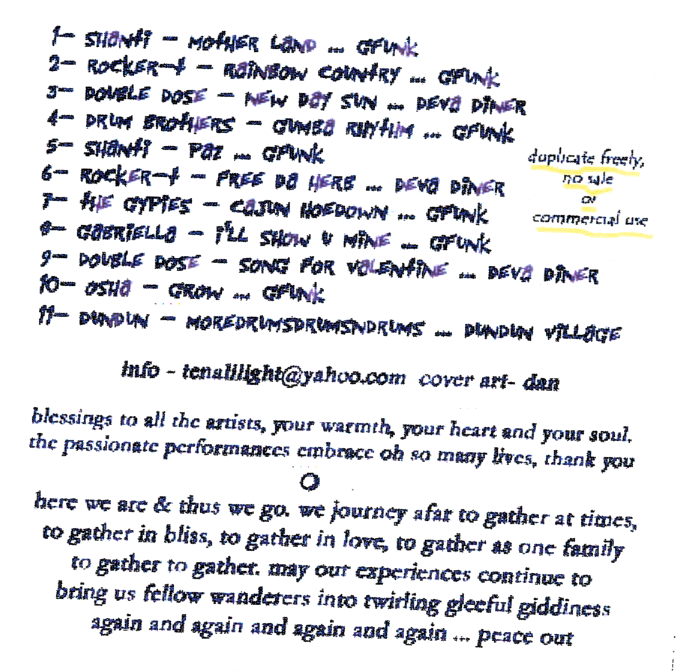 1- SHANTI - MOTHER LAND ... GFUNK
2- ROCKER-T - RAINBOW COUNTRY ... GFUNK
3- DOUBLE DOSE - NEW DAY SUN ... DEVA DINER
4- DRUM BROTHERS - GUMBA RHYTHM ... GFUNK
5- SHANTI - PAZ ... GFUNK
6- ROCKER-T - FREE DA HERB ... DEVA DINER
7- THE GYPIES - CAJUN HOEDOWN ... GFUNK
8- GABRIELLA - I'LL SHOW U MINE ... GFUNK
9- DOUBLE DOSE - SONG FOR VALENTINE ... DEVA DINER
10- OSHA - GROW ... GFUNK
11- DUNDUN - MOREDRUMSDRUMSNDRUMS ... DUNDUN VILLAGE
duplicate freely,
no sale
or
commercial use
info - tenalilight@yahoo.com cover art- dan
blessings to all the artists, your warmth, your heart and your soul.
the passionate performances embrace oh so many lives, thank you
O
here we are & thus we go. we journey afar to gather at times,
to gather in bliss, to gather in love, to gather as one family
to gather to gather. may our experiences continue to
bring us fellow wanderers into twirling gleeful giddiness
again and again and again and again ... peace out